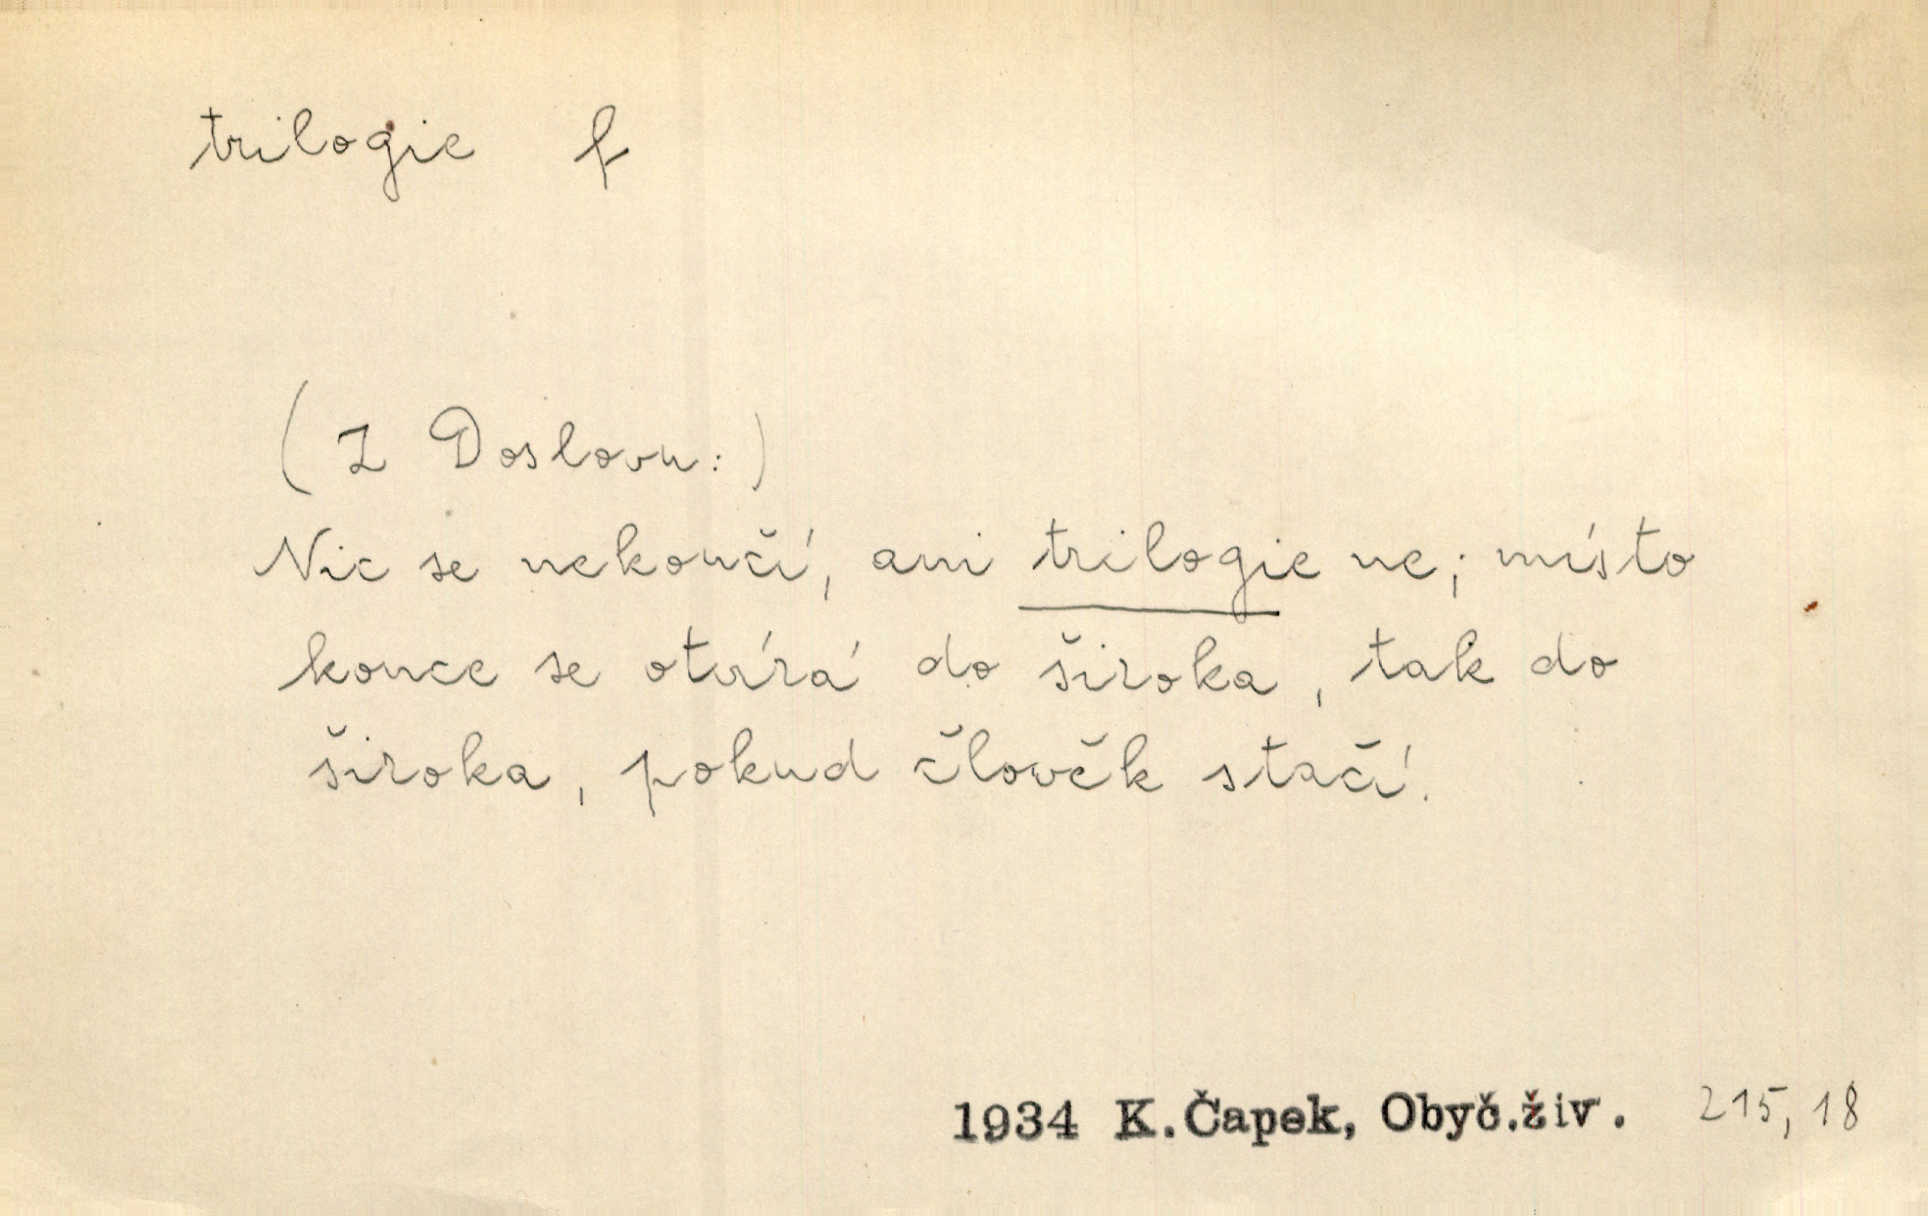 trilogie f
(Z Doslovu:)
Nic se nekončí, ani trilogie ne; místo
konce se otvírá do široka, tak do
široka, pokud člověk stačí.
1934 K. Čapek, Obyč.živ. 215, 18